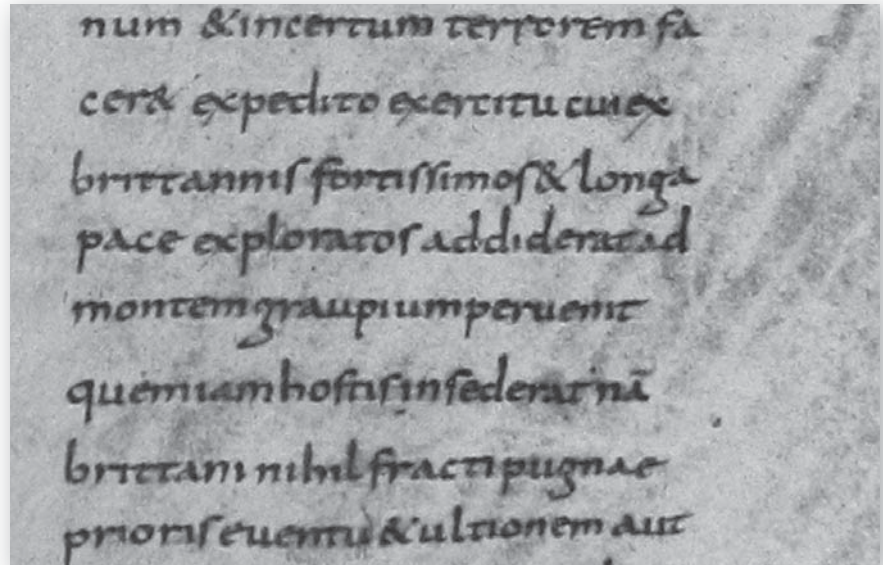 num &incertum terrorem fa
cer& expedito exercitu cui ex
brittannis fortissimos & longa
pace exploratos addiderat ad
montem graupium peruenit
quem iam hostis insederat nā
brittani nihil fracti pugnae
prioris euentu & ultionem aut